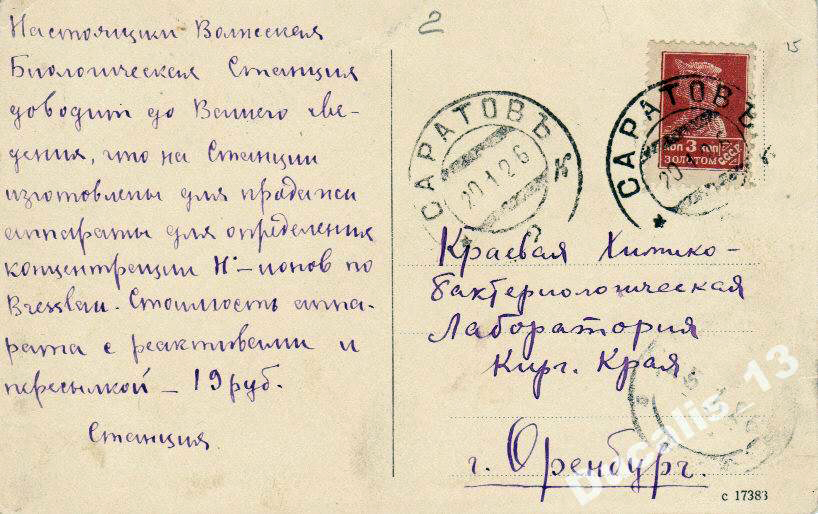 Настоящим Волжская
Биологическая Станция
доводит до Вашего све-
дения, что на Станции
изготовлены для продажи
аппараты для определения
концентрации H˙-ионов по
Bresslau. Стоимость аппа-
рата с реактивами и
пересылкой – 19 руб.
Станция
2
15
САРАТОВЪ
20 1 26
САРАТОВЪ
20 1
3 КОП
ЗОЛОТОМ
СССР
Краевая Химико-
бактериологическая
Лаборатория
Кирг. Края
г. Оренбург.
Ducalis_13
с 17383